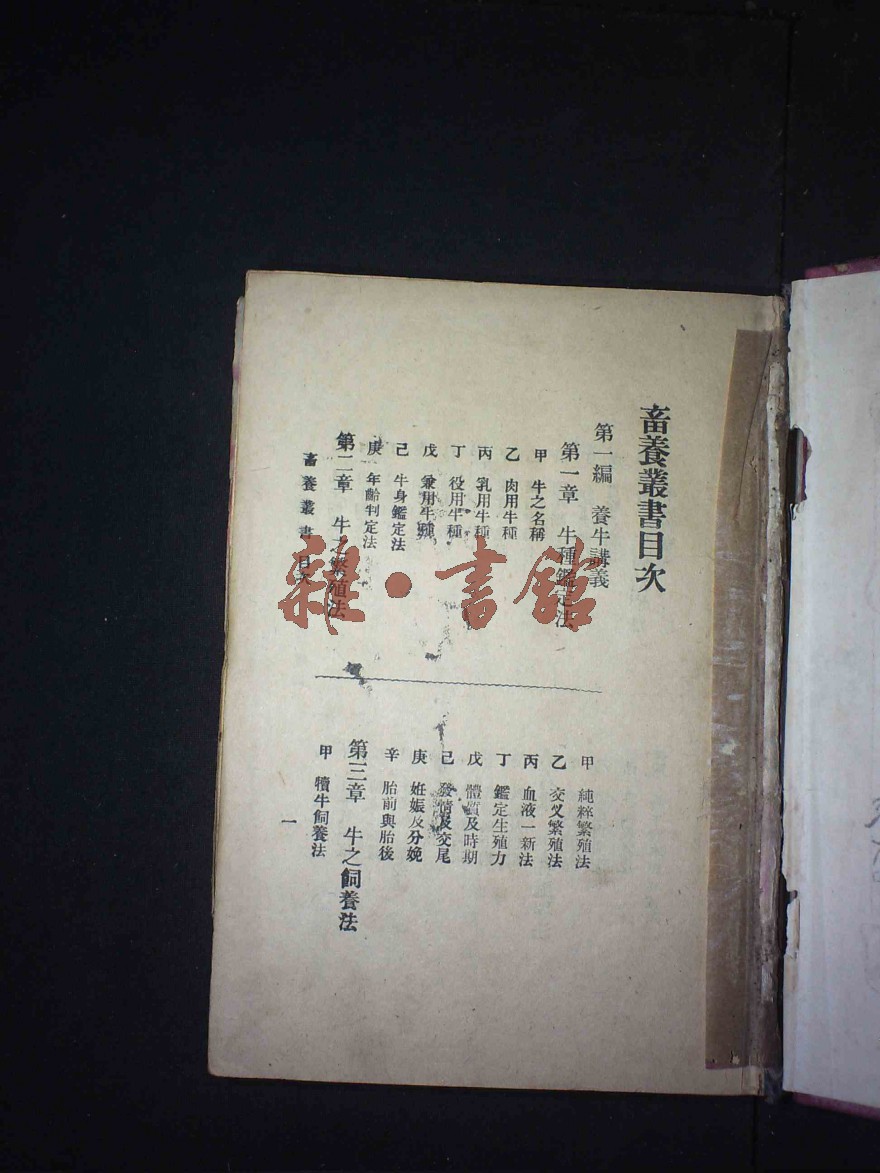 畜養叢書目次
第一編　養牛講義
第一章　牛種鑑定法
甲　牛之名稱
乙　肉用牛種
丙　乳用牛種
丁　役用牛種
戊　兼用牛種
己　牛身鑑定法
庚　年齡判定法
第二章　牛之繁殖法
甲　純粹繁殖法
乙　交叉繁殖法
丙　血液一新法
丁　鑑定生殖力
戊　體質及時期
己　發情及交尾
庚　妊娠及分娩
辛　胎前與胎後
第三章　牛之飼養法
甲　犢牛飼養法
畜養叢書　目次
一
雜·書館